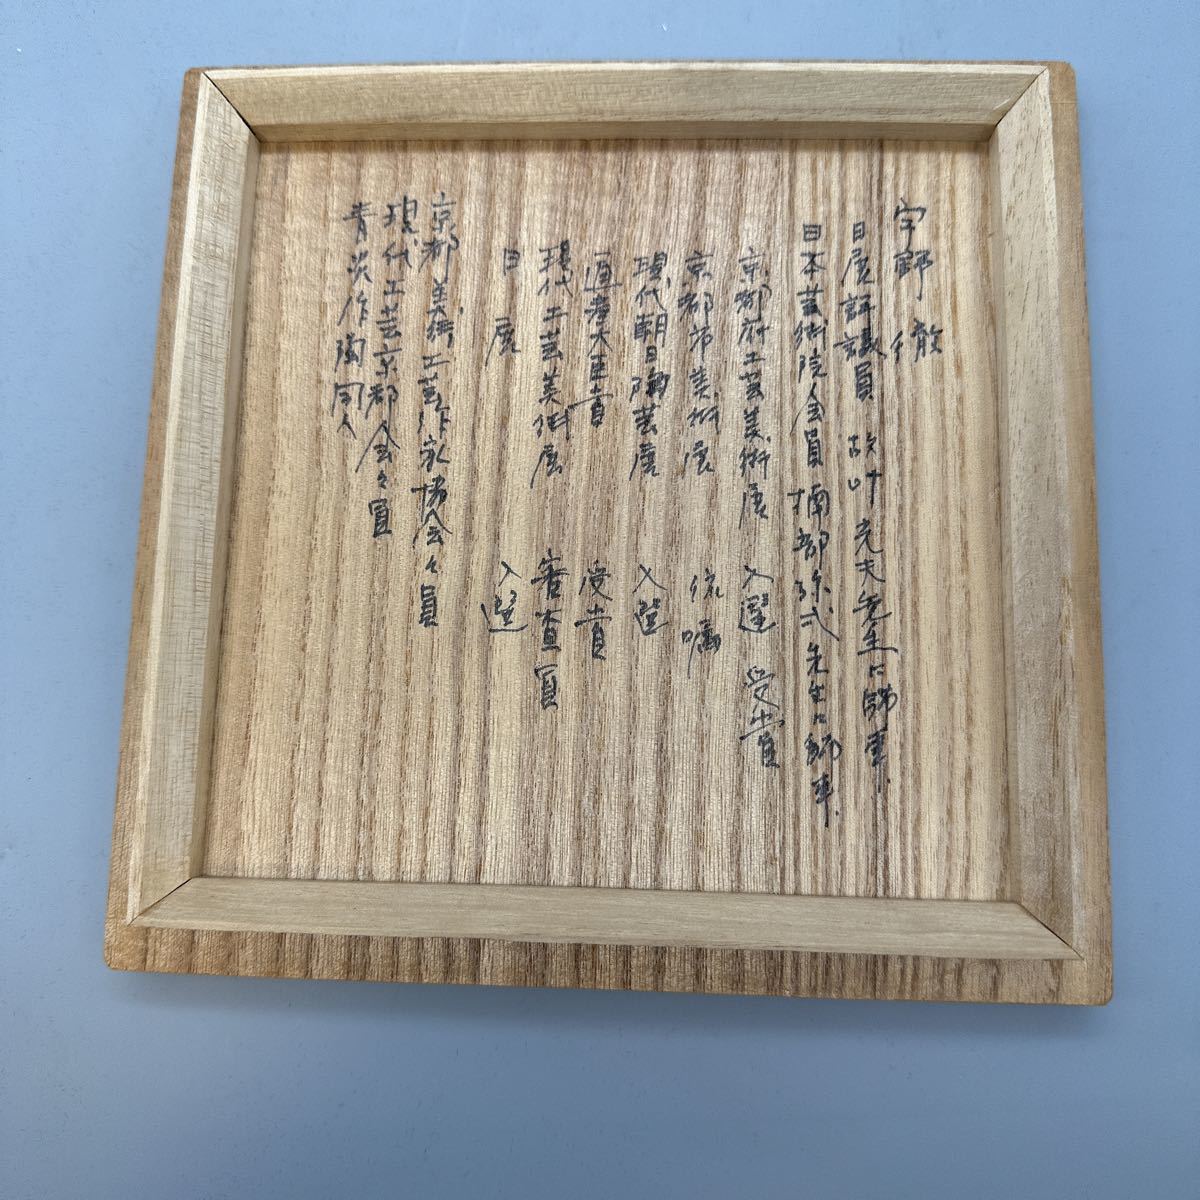 宇野 徹
日展評議員 故叶光夫先生に師事.
日本芸術院会員 楠部弥弌先生に師事.
京都府工芸美術展 入選 受賞
京都市美術展 依嘱
現代朝日陶芸展 入選
通産大臣賞 受賞
現代工芸美術展 審査員
日展 入選
京都美術工芸作家協会々員
現代工芸京都会々員
青炎作陶同人